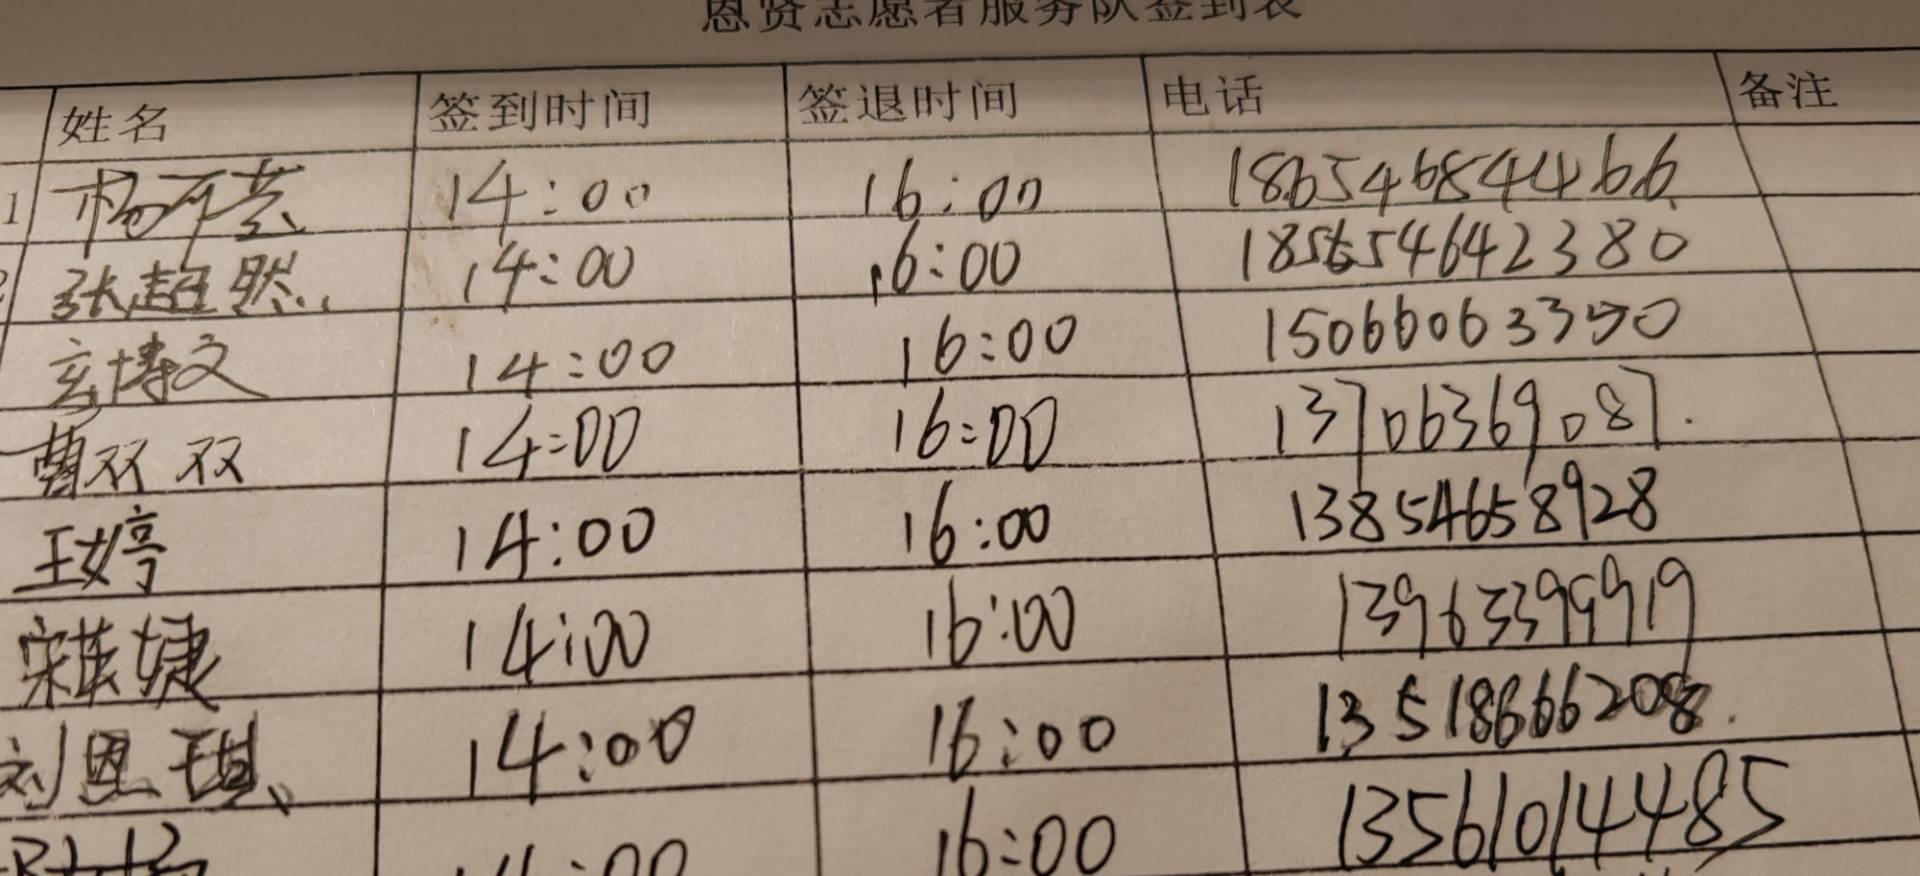 恩贤志愿者服务队签到表
姓名 签到时间 签退时间 电话 备注
1 杨可芸 14:00 16:00 18654684466
张超然 14:00 16:00 185654642380
玄博文 14:00 16:00 15066063390
曹双双 14:00 16:00 13706369087.
王婷 14:00 16:00 13854658928
宋婕 14:00 16:00 13963399919
刘恩琪 14:00 16:00 13518666208.
14:00 16:00 13561014485